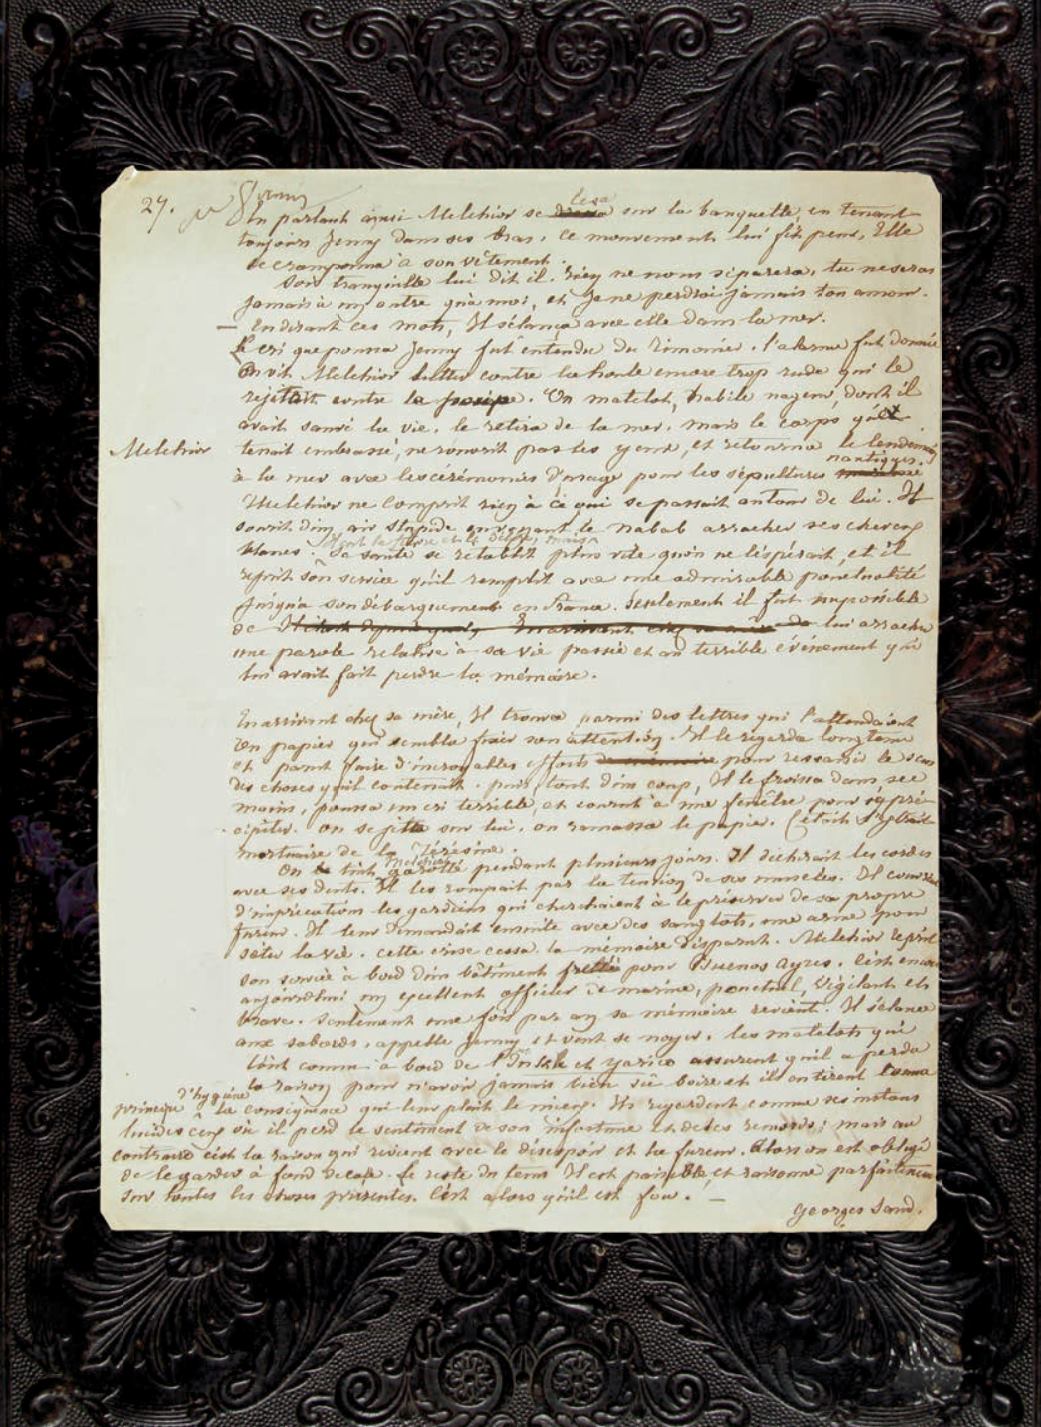 27.
En parlant ainsi Melchior se leva sur la banquette, en tenant
toujours Jenny dans ses bras. Ce mouvement lui fit peur, Elle
se cramponna à son vêtement.
Sois tranquille lui dit il. rien ne nous séparera. tu ne seras
jamais à un autre qu'à moi, et je ne perdrai jamais ton amour.
— En disant ces mots, Il s'élança avec elle dans la mer.
Le cri que poussa Jenny fut entendu du timonier. l'alarme fut donnée
On vit Melchior lutter contre la houle encore trop rude qui le
rejetait contre la poupe. Un matelot, habile nageur, dont il
avait sauvé la vie, le retira de la mer. mais le corps qu'il
Melchior
tenait embrassé, ne rouvrit pas les yeux, et retourna le lendemain
à la mer avec les cérémonies d'usage pour les sépultures nautiques.
Melchior ne comprit rien à ce qui se passait autour de lui. Il
sourit d'un air stupide en voyant le nabab arracher ses cheveux
blancs. Il eut la fièvre et le délire, mais Sa santé se rétablit plus vite qu'on ne l'espérait, et il
reprit son service qu'il remplit avec une admirable ponctualité
jusqu'à son débarquement en france. Seulement il fut impossible
de lui arracher
une parole relative à sa vie passée et au terrible événement qui
lui avait fait perdre la mémoire.
En arrivant chez sa mère, Il trouva parmi des lettres qui l'attendaient
Un papier qui sembla fixer son attention. Il le regarda longtems
et parut faire d'incroyables efforts pour ressaisir le sens
des choses qu'il contenait. puis tout d'un coup, Il le froissa dans ses
mains, poussa un cri terrible, et courut à une fenêtre pour s'y pré-
cipiter. On se jetta sur lui. on ramassa le papier. C'était l'extrait
mortuaire de la Térésine.
On tint Melchior garotté pendant plusieurs jours. Il déchirait les cordes
avec ses dents. Il les rompait par la tension de ses muscles. Il couvrait
d'imprécations les gardiens qui cherchaient à le préserver de sa propre
fureur. Il leur demandait ensuite avec des sanglots, une arme pour
s'ôter la vie. cette crise cessa. la mémoire disparut. Melchior reprit
son service à bord d'un bâtiment frétté pour Buenos Ayres. C'est encore
aujourd'hui un excellent officier de marine, ponctuel, vigilant et
brave. Seulement une fois par an sa mémoire revient. Il s'élance
aux sabords, appelle Jenny et veut se noyer. les matelots qui
l'ont connu à bord de l'Inkle et Yarico assurent qu'il a perdu
la raison pour n'avoir jamais bien su boire et ils en tirent comme
principe d'hygiène la conséquence qui leur plaît le mieux. Ils regardent comme ses instans
lucides ceux où il perd le sentiment de son infortune et de ses remords; mais au
contraire c'est la raison qui revient avec le désespoir et la fureur. Alors on est obligé
de le garder à fond de cale. le reste du tems Il est paisible, et raisonne parfaitement
sur toutes les choses présentes. C'est alors qu'il est fou. —
Georges Sand.